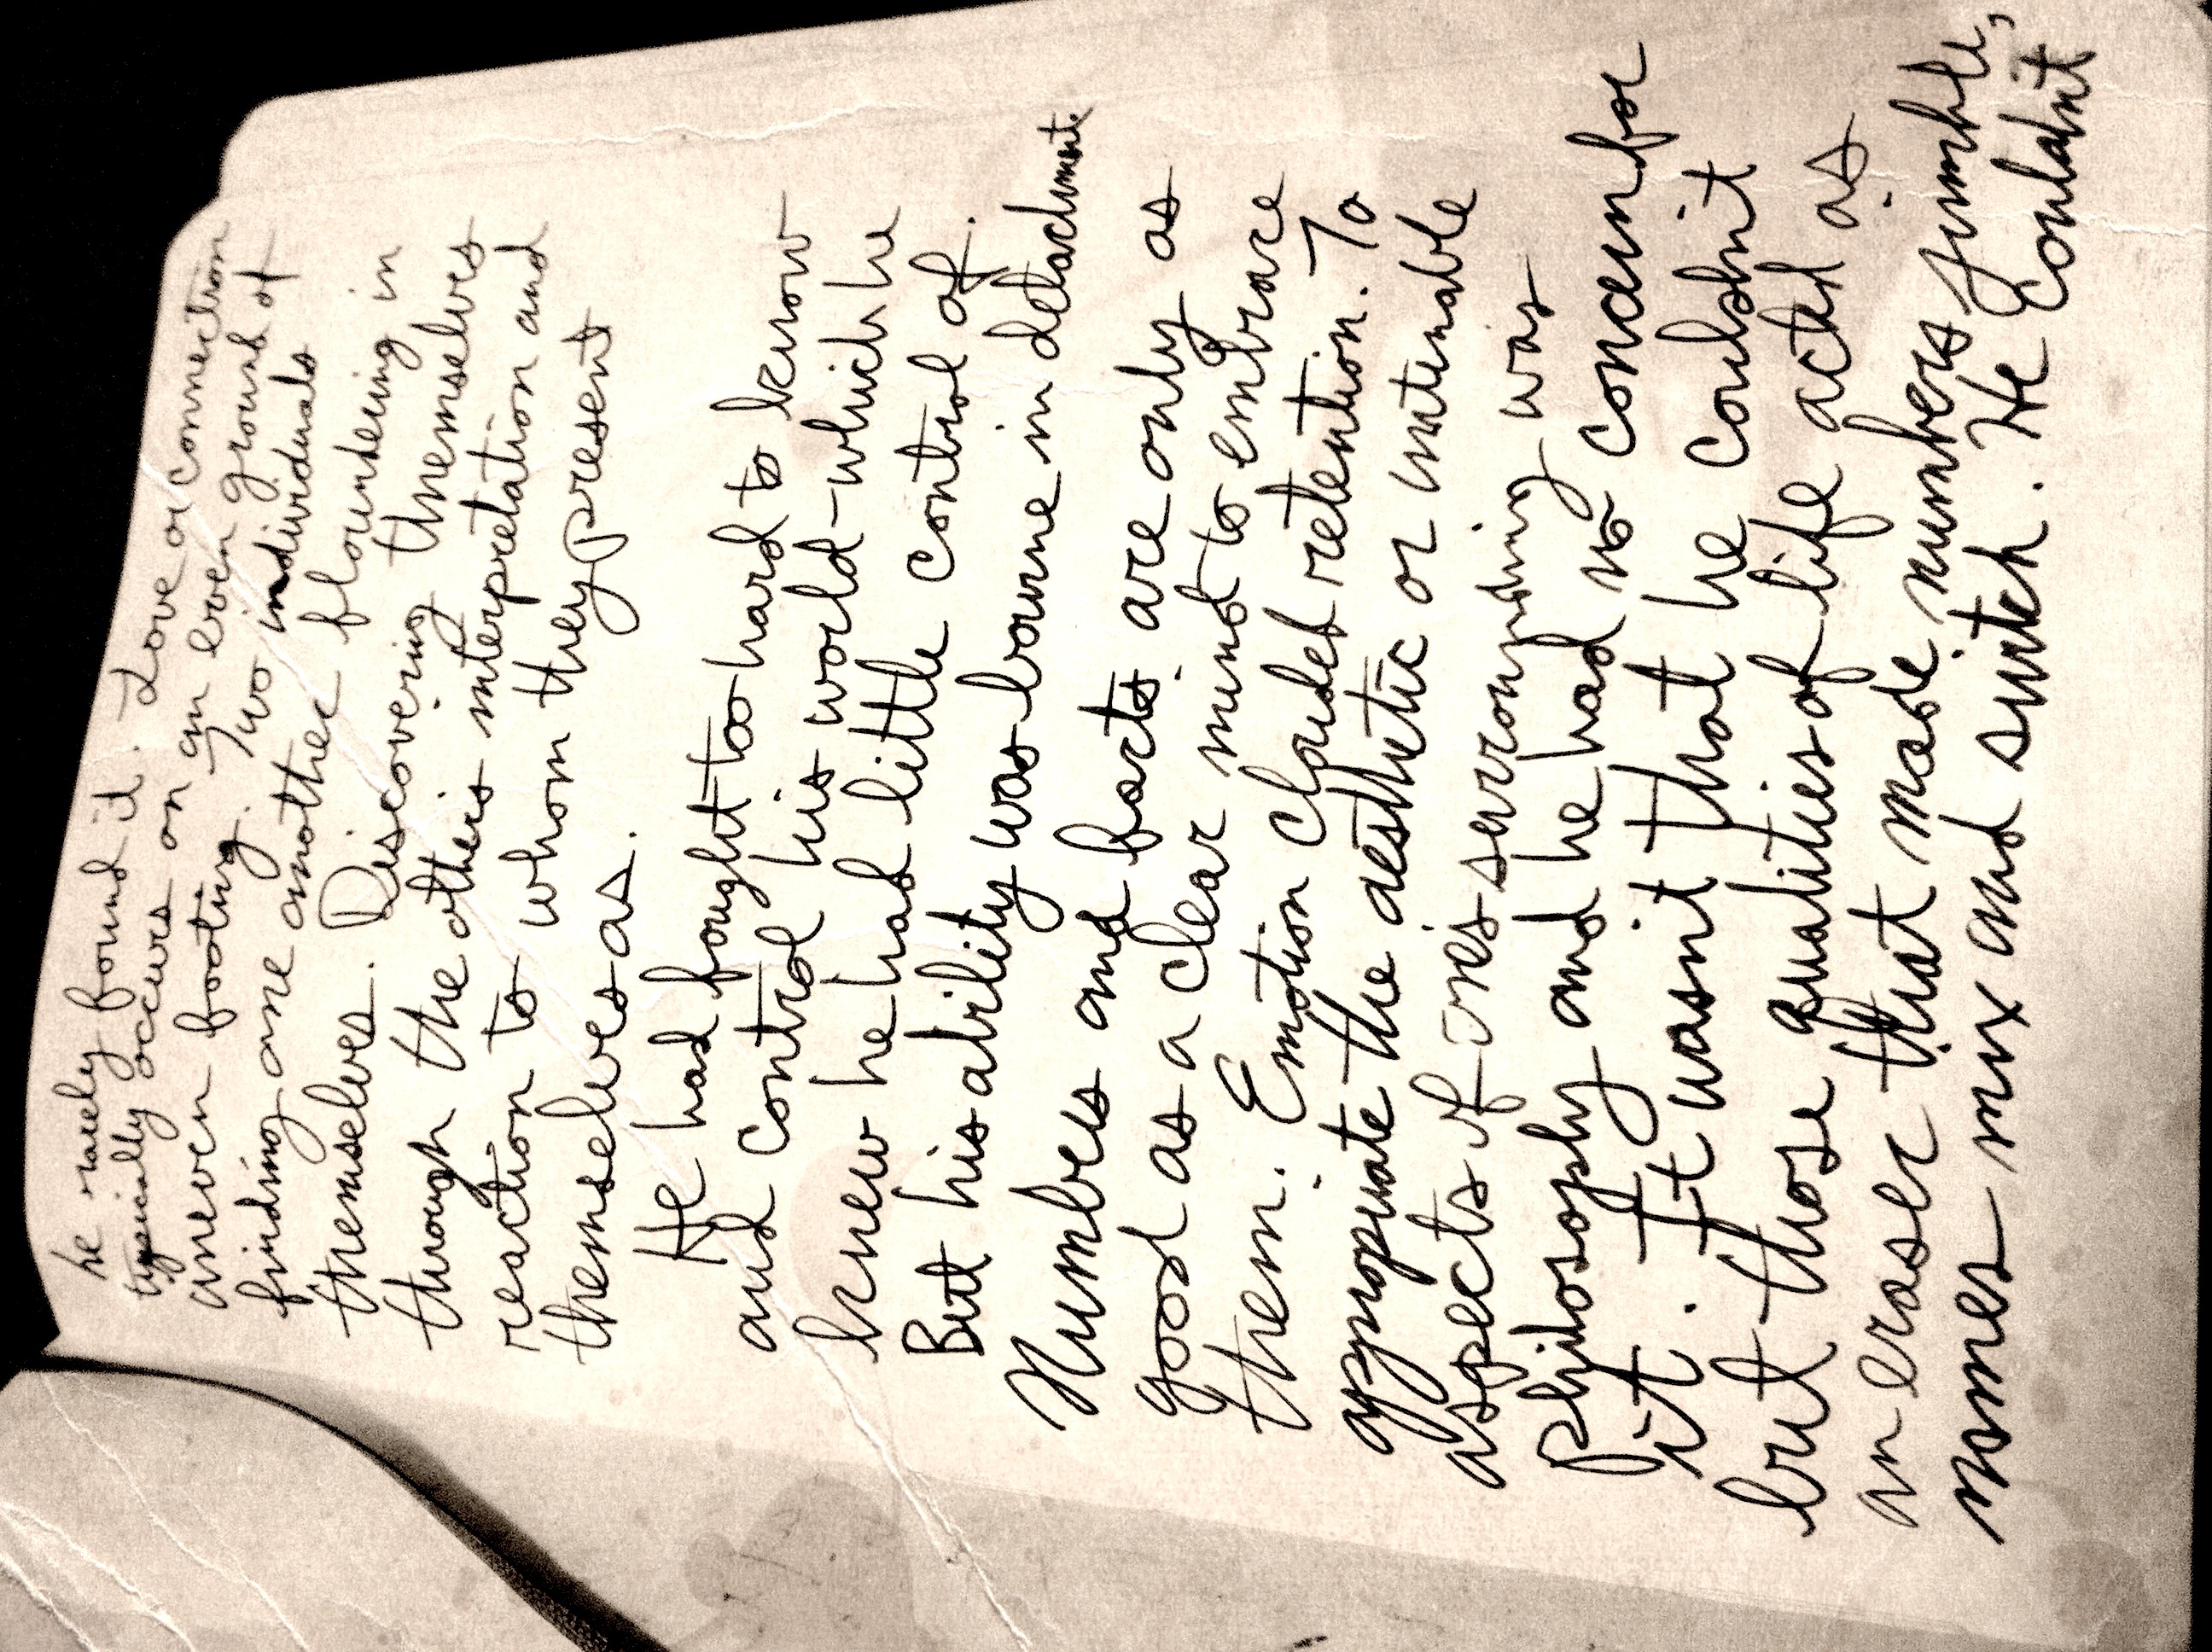 he rarely found it. Love or connection
typically occurs on an even ground of
uneven footing. Two individuals
finding one another floundering in
themselves. Discovering themselves
through the other's interpretation and
reaction to whom they present
themselves as.
He had fought too hard to know
and control his world-which he
knew he had little control of.
But his ability was bourne in detachment.
Numbers and facts are only as
good as a clear mind to embrace
them. Emotion clouded retention. To
appropriate the aesthetic or inutenable
aspects of ones serrounding was
philosophy and he had no concern for
it. It wasnit that he couldn't
but those qualities of life acted as
an eraser that made numbers jumble,
names mix and switch. He couldn't